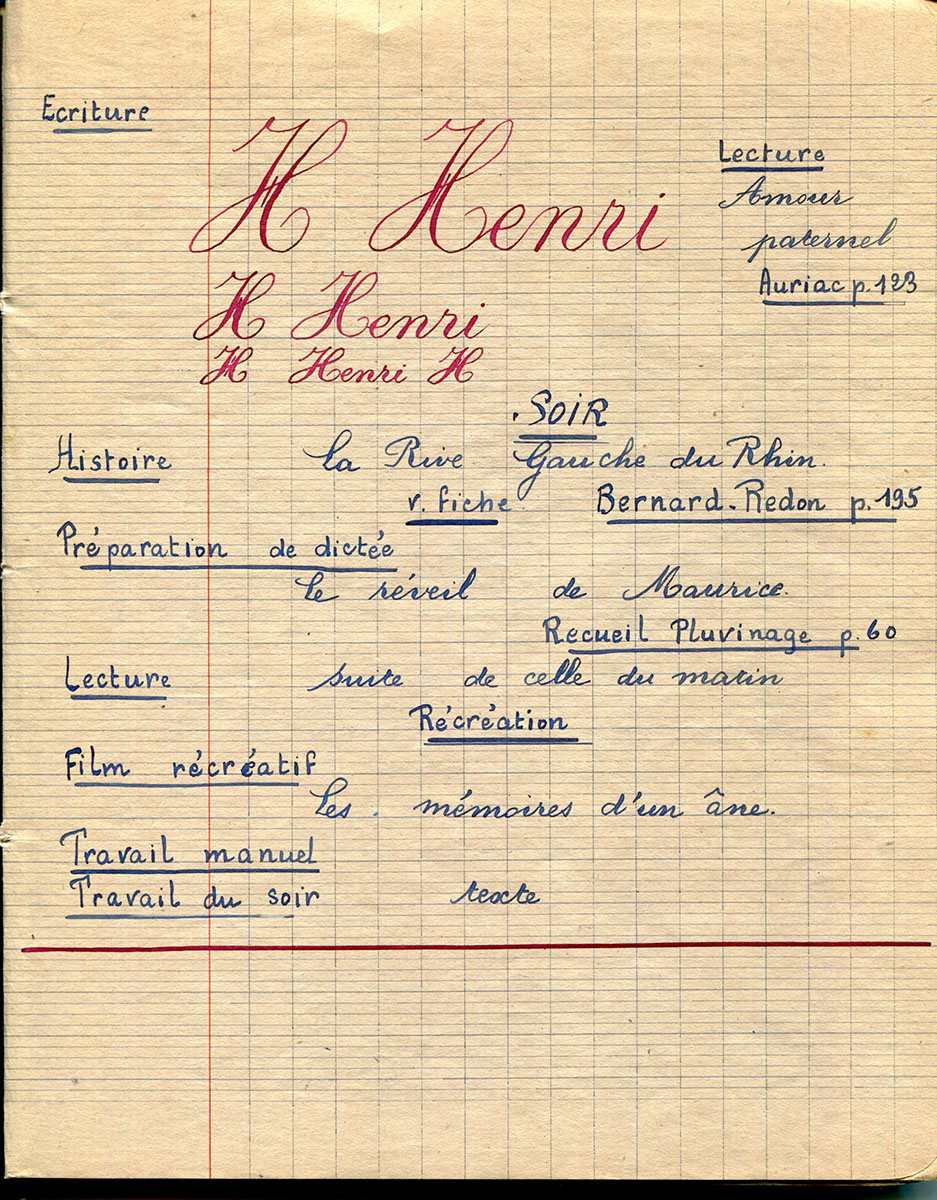 Ecriture
H Henri
Lecture
Amour
paternel
Auriac p. 123
H Henri
H Henri H
SOIR
Histoire La Rive Gauche du Rhin.
v. fiche Bernard-Redon p. 195
Préparation de dictée
Le réveil de Maurice.
Recueil Pluvinage p. 60
Lecture suite de celle du matin
Récréation
Film récréatif
Les mémoires d'un âne.
Travail manuel
Travail du soir texte